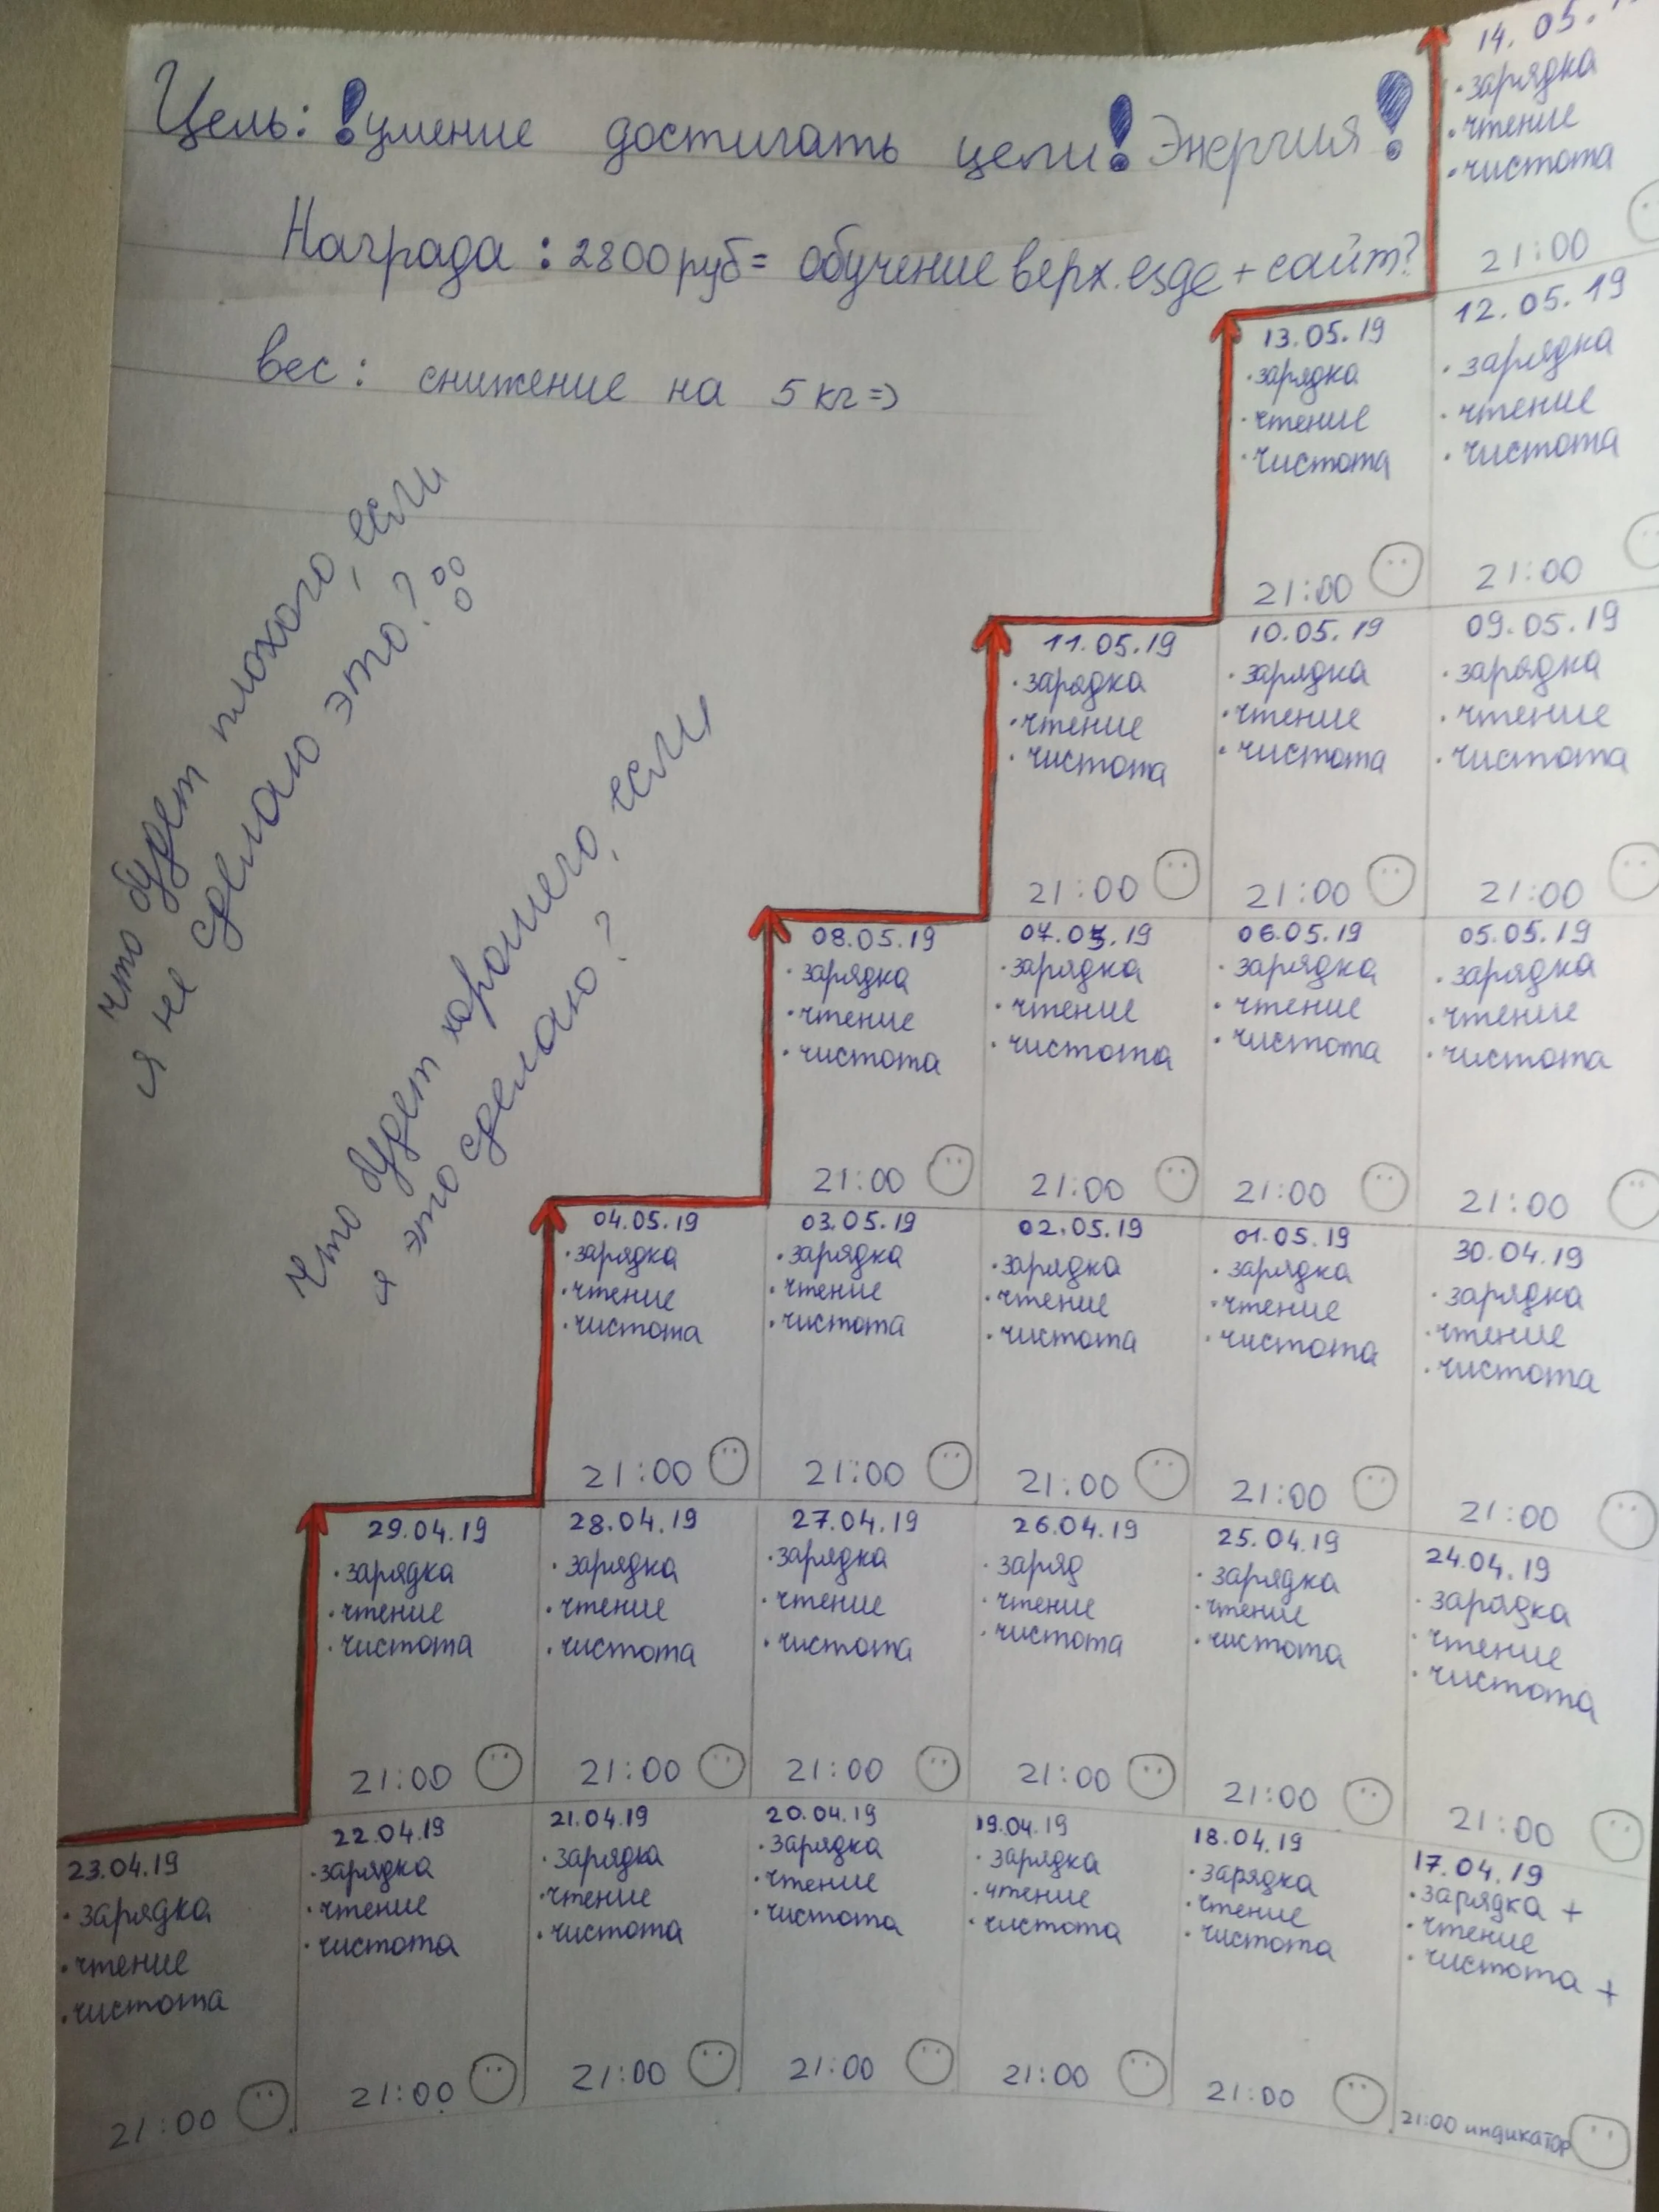 Цель: ! умение достигать цели! Энергия!
Награда: 2800 руб = обучение верх. езде + сайт?
вес: снижение на 5 кг =>
что будет плохого, если
я не сделаю это?
Что будет хорошего, если
я это сделаю?
14.05.
· зарядка
· чтение
· чистота
21:00
13.05.19
· зарядка
· чтение
· чистота
21:00
12.05.19
· зарядка
· чтение
· чистота
21:00
11.05.19
· зарядка
· чтение
· чистота
21:00
10.05.19
· зарядка
· чтение
· чистота
21:00
09.05.19
· зарядка
· чтение
· чистота
21:00
08.05.19
· зарядка
· чтение
· чистота
21:00
07.05.19
· зарядка
· чтение
· чистота
21:00
06.05.19
· зарядка
· чтение
· чистота
21:00
05.05.19
· зарядка
· чтение
· чистота
21:00
04.05.19
· зарядка
· чтение
· чистота
21:00
03.05.19
· зарядка
· чтение
· чистота
21:00
02.05.19
· зарядка
· чтение
· чистота
21:00
01.05.19
· зарядка
· чтение
· чистота
21:00
30.04.19
· зарядка
· чтение
· чистота
21:00
29.04.19
· зарядка
· чтение
· чистота
21:00
28.04.19
· зарядка
· чтение
· чистота
21:00
27.04.19
· зарядка
· чтение
· чистота
21:00
26.04.19
· заряд
· чтение
· чистота
21:00
25.04.19
· зарядка
· чтение
· чистота
21:00
24.04.19
· зарядка
· чтение
· чистота
21:00
23.04.19
· зарядка
· чтение
· чистота
21:00
22.04.19
· зарядка
· чтение
· чистота
21:00
21.04.19
· зарядка
· чтение
· чистота
21:00
20.04.19
· зарядка
· чтение
· чистота
21:00
19.04.19
· зарядка
· чтение
· чистота
21:00
18.04.19
· зарядка
· чтение
· чистота
21:00
17.04.19
· зарядка +
· чтение
· чистота +
21:00 индикатор